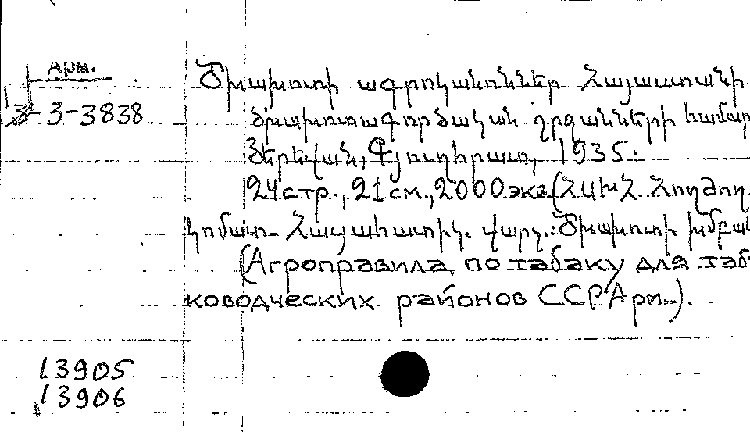 Арм.
3-3-3838
Ծխախոտի ագրոկանոններ Հայաստանի
ծխախոտագործական շրջանների համար
Յերեվան, Գյուղհրատ, 1935.
24стр., 21см., 2000экз. (ՀՍԽՀ Հողժող
կոմատ Հայպետհրատ. վարչ. Ծխախոտի
(Агроправила по табаку для таб
ководческих районов ССРАрм.).
13905
13906